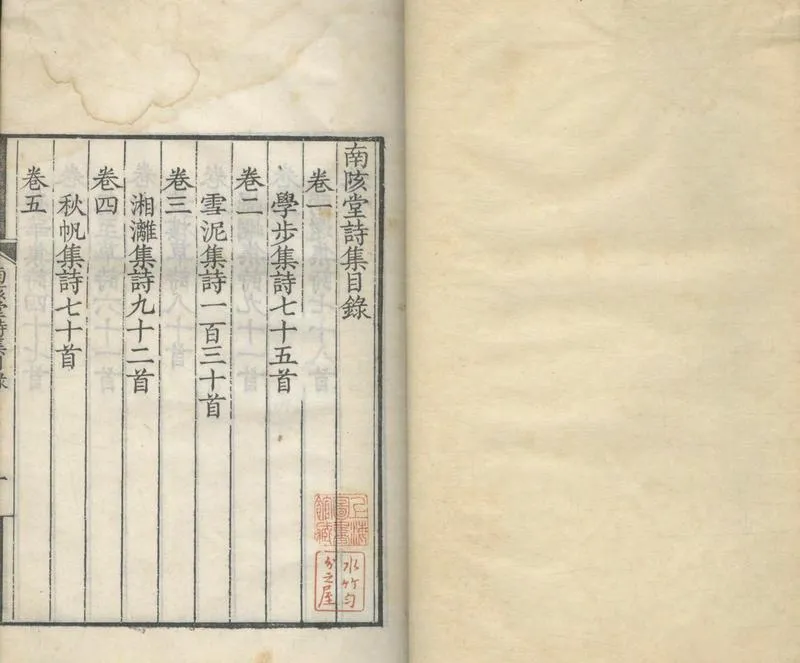 南陔堂詩集目錄
卷一
學步集詩七十五首
卷二
雪泥集詩一百三十首
卷三
湘灕集詩九十二首
卷四
秋帆集詩七十首
卷五
南陔堂詩集目錄
一
上海圖書館藏
水竹勻分之屋